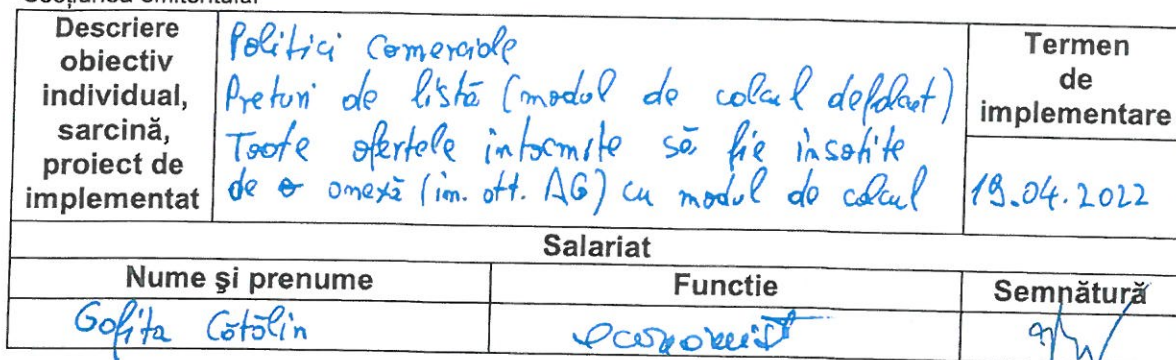 Secțiunea emitentului
Descriere obiectiv individual, sarcină, proiect de implementat
Politici Comerciale
Preturi de listă (modul de calcul defalcat)
Toate ofertele întocmite să fie însotite
de o anexă (în. att. AG) cu modul de calcul
Termen de implementare
19.04.2022
Salariat
Nume și prenume
Functie
Semnătură
Gofita Cătălin
economist